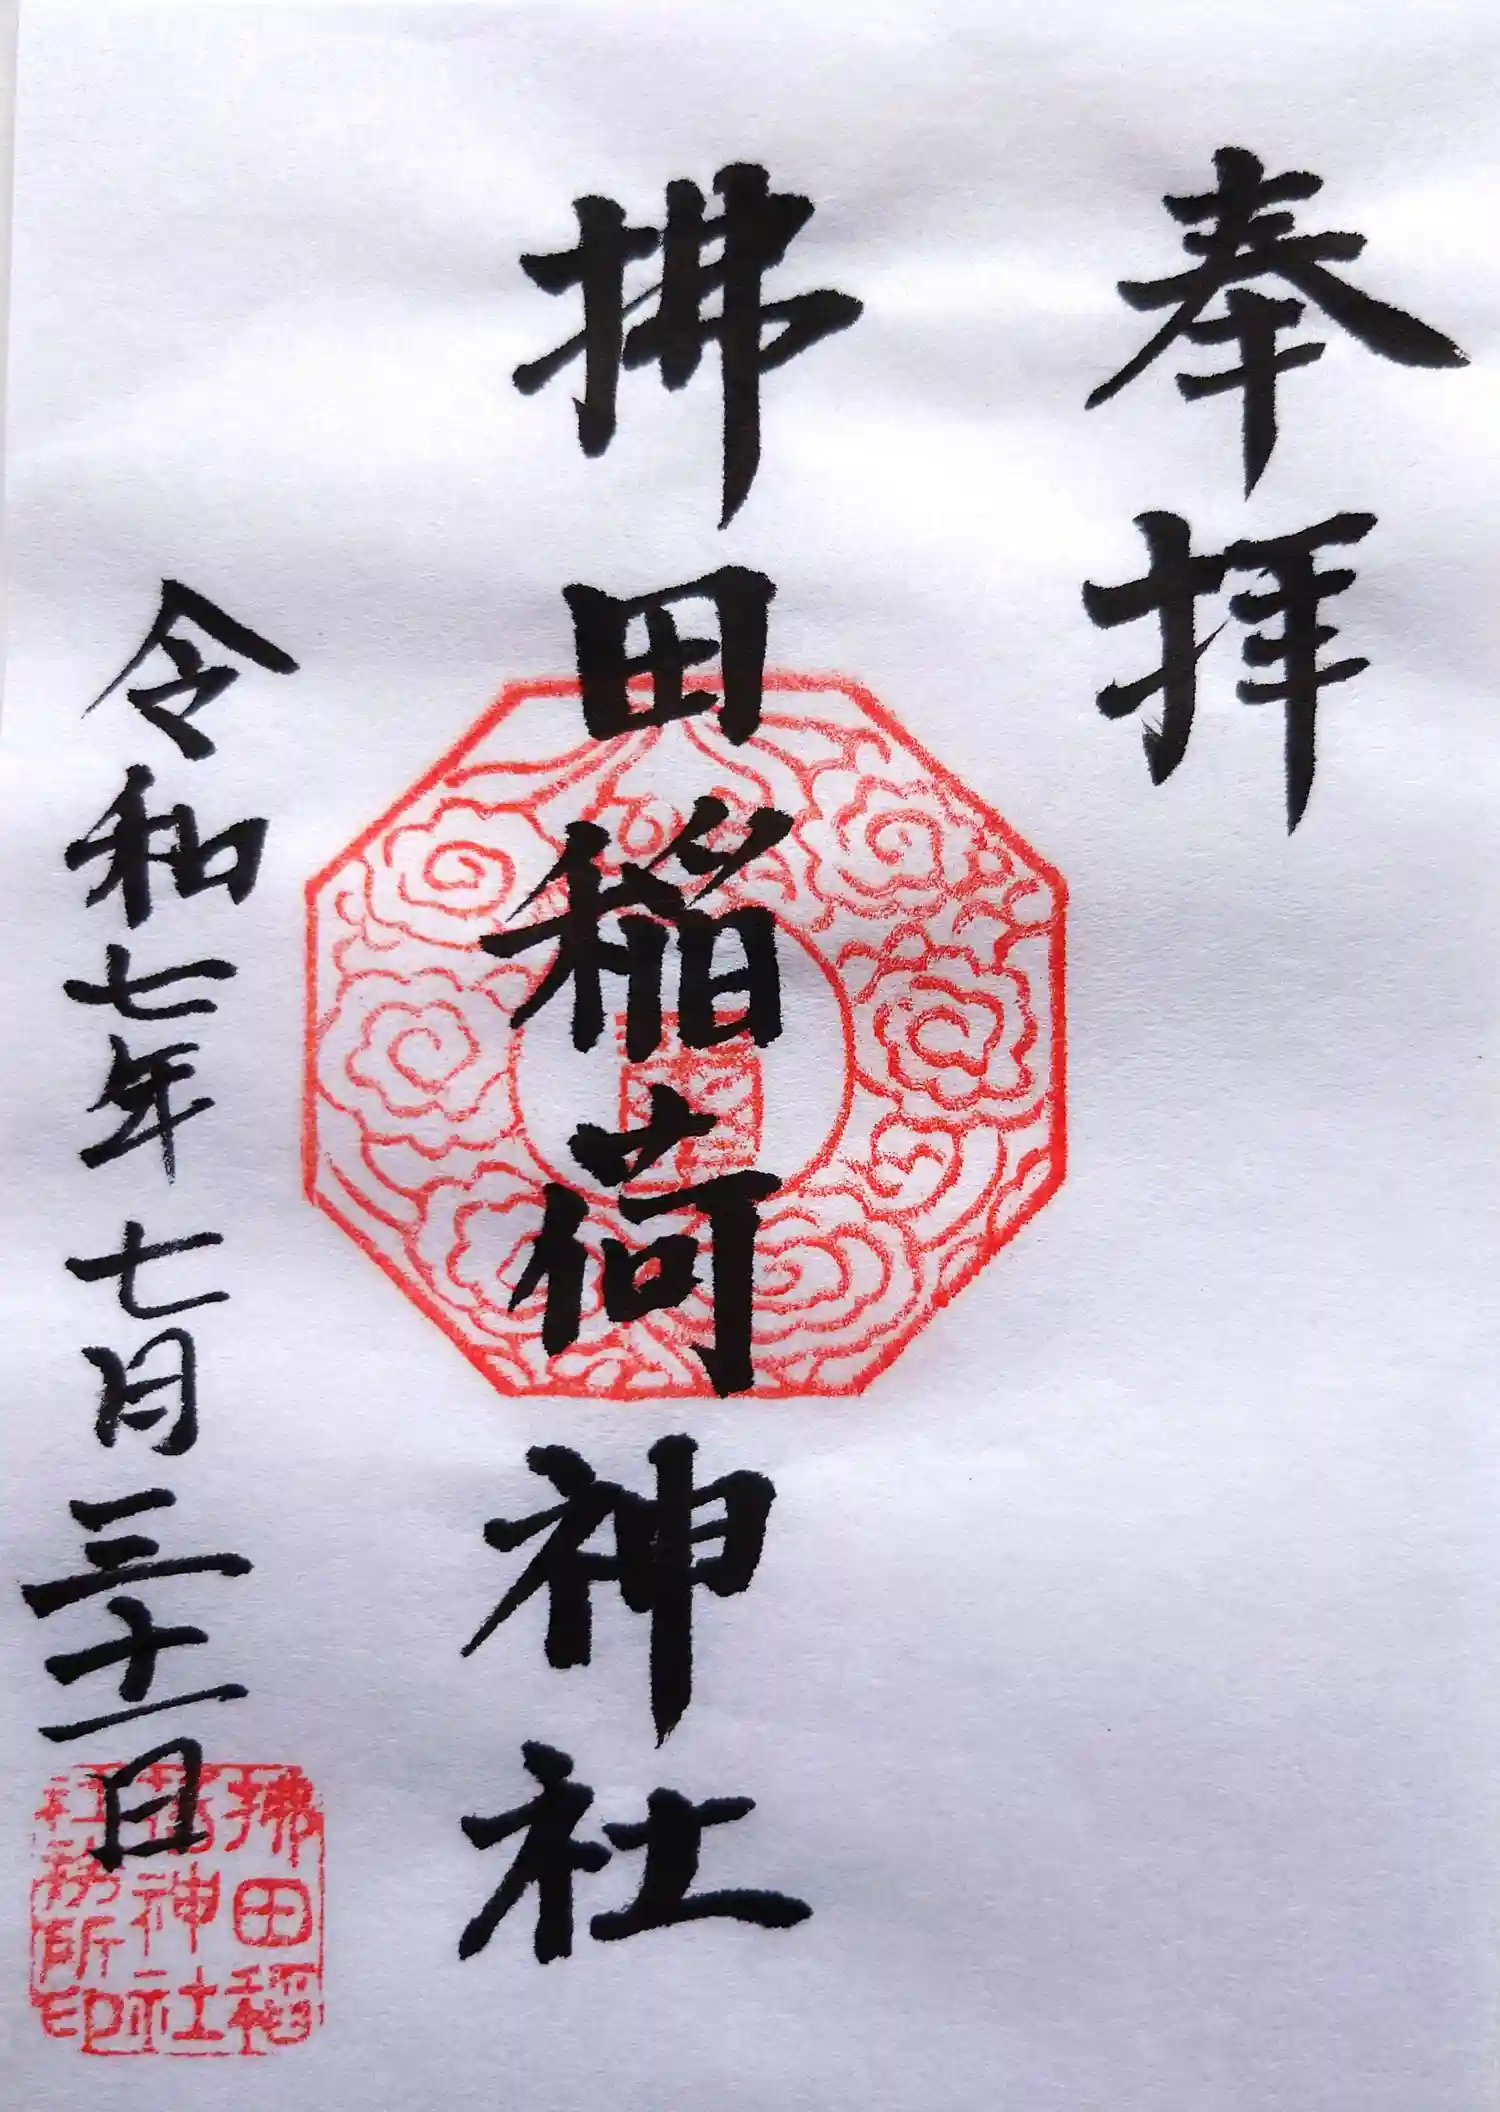 奉拝
拂田稲荷神社
令和七年 七月三十一日
拂田稲
荷神社
社務所印